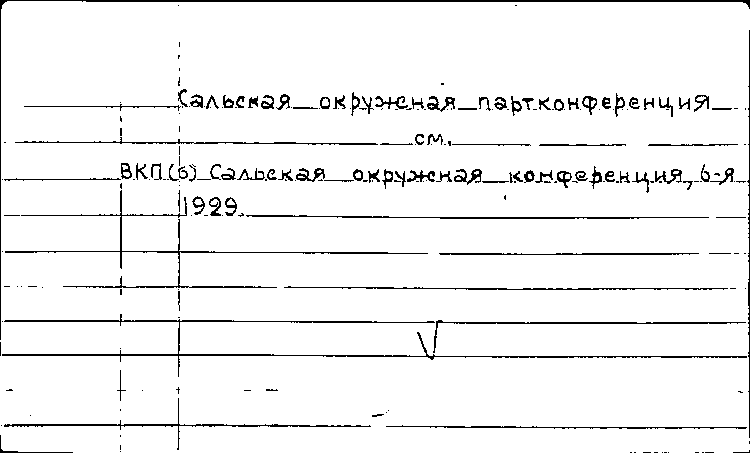 Сальская окружная партконференция
см.
ВКП(б) Сальская окружная конференция, 6-я
1929.